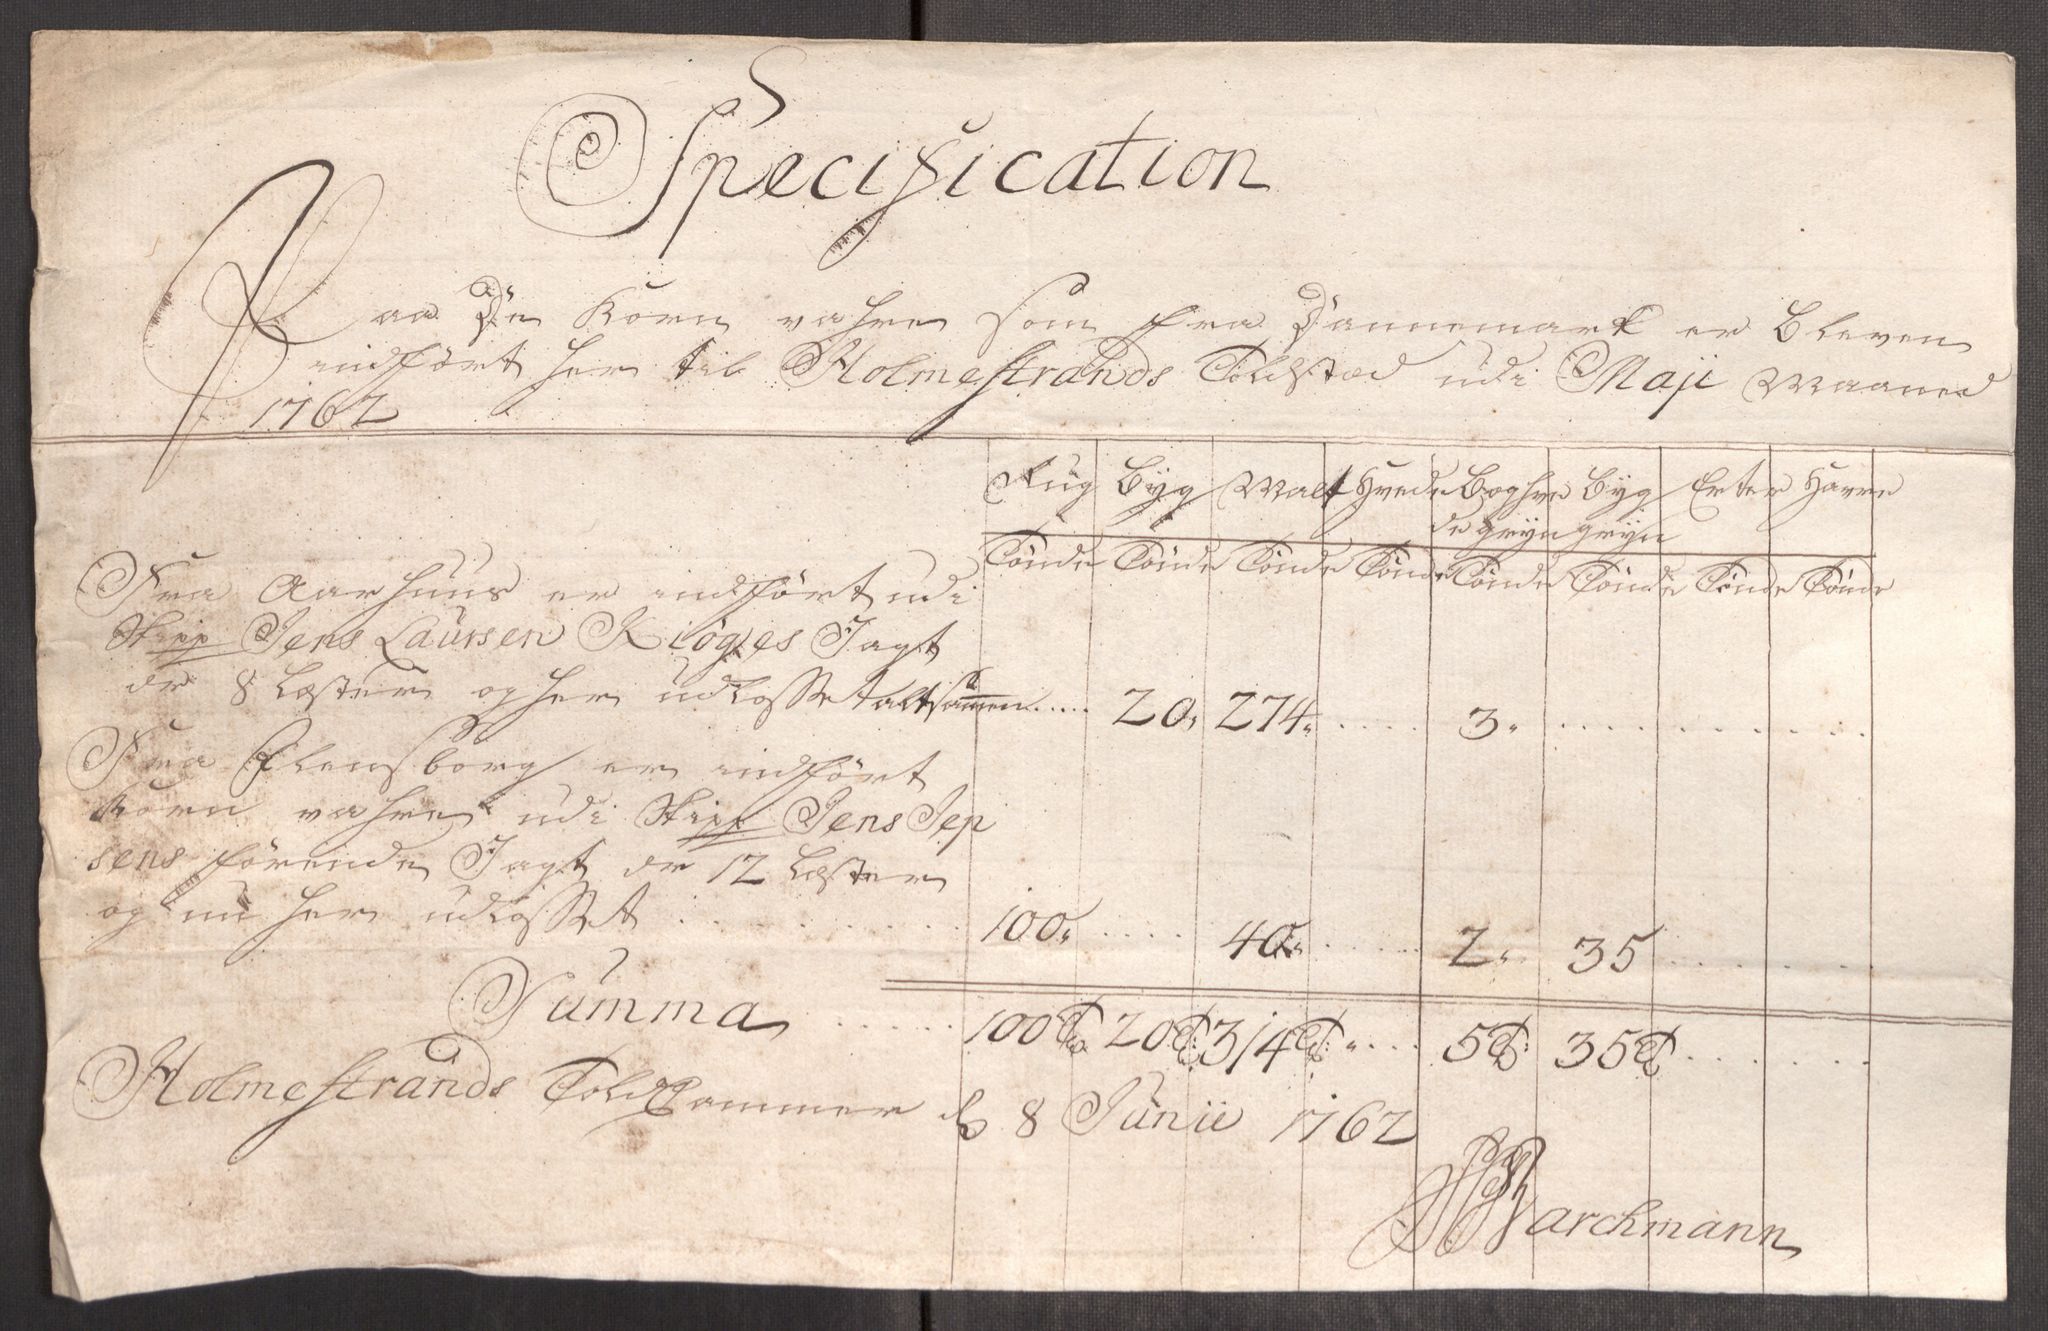 Specification
Paa De Korn vahre som fra Dannemark er bleven
indført her til Holmestrands Toldstæd udi Maji Maaned
1762
Rug Byg Malt Hvede Boghve Byg Erter Havre
de gryn gryn
Tønde Tønde Tønde Tønde Tønde Tønde Tønde Tønde
Fra Aarhuus er indført udi
Skipp Jens Laursen Kiøges Jagt
dr 8 Læster og her udlosset alt sammen ..... 20, 274, ..... 3, ..........
Fra Flensborg er indført
Korn vahre udi Skipp Jens Jep
sens førende Jagt dr 12 Læster
og nu her udlosset ......... 100, ..... 40, ..... 2, 35 .......
Summa ...... 100 T 20 T 314 T ..... 5 T 35 T .......
Holmestrands Told Cammer d 8 Junii 1762
Barchmann